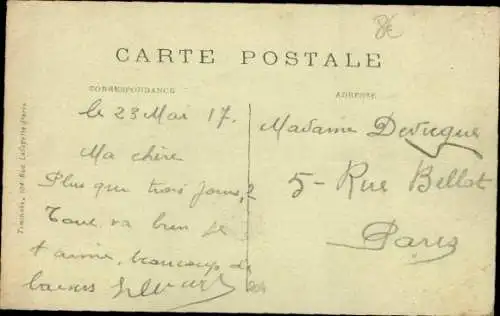 8€
CARTE POSTALE
CORRESPONDANCE
ADRESSE
le 23 Mai 17.
Ma chère
Plus que trois jours,
Tout va bien je
t aime, beaucoup de
baisers
Madame
5 - Rue Bellot
Paris
Rue Lafayette, Paris